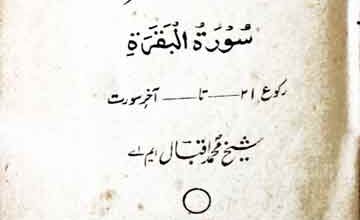 سُورَةُ الْبَقَرَةِ
رکوع ۲۱ — تا — آخر سورت
شیخ محمد اقبال ایم اے